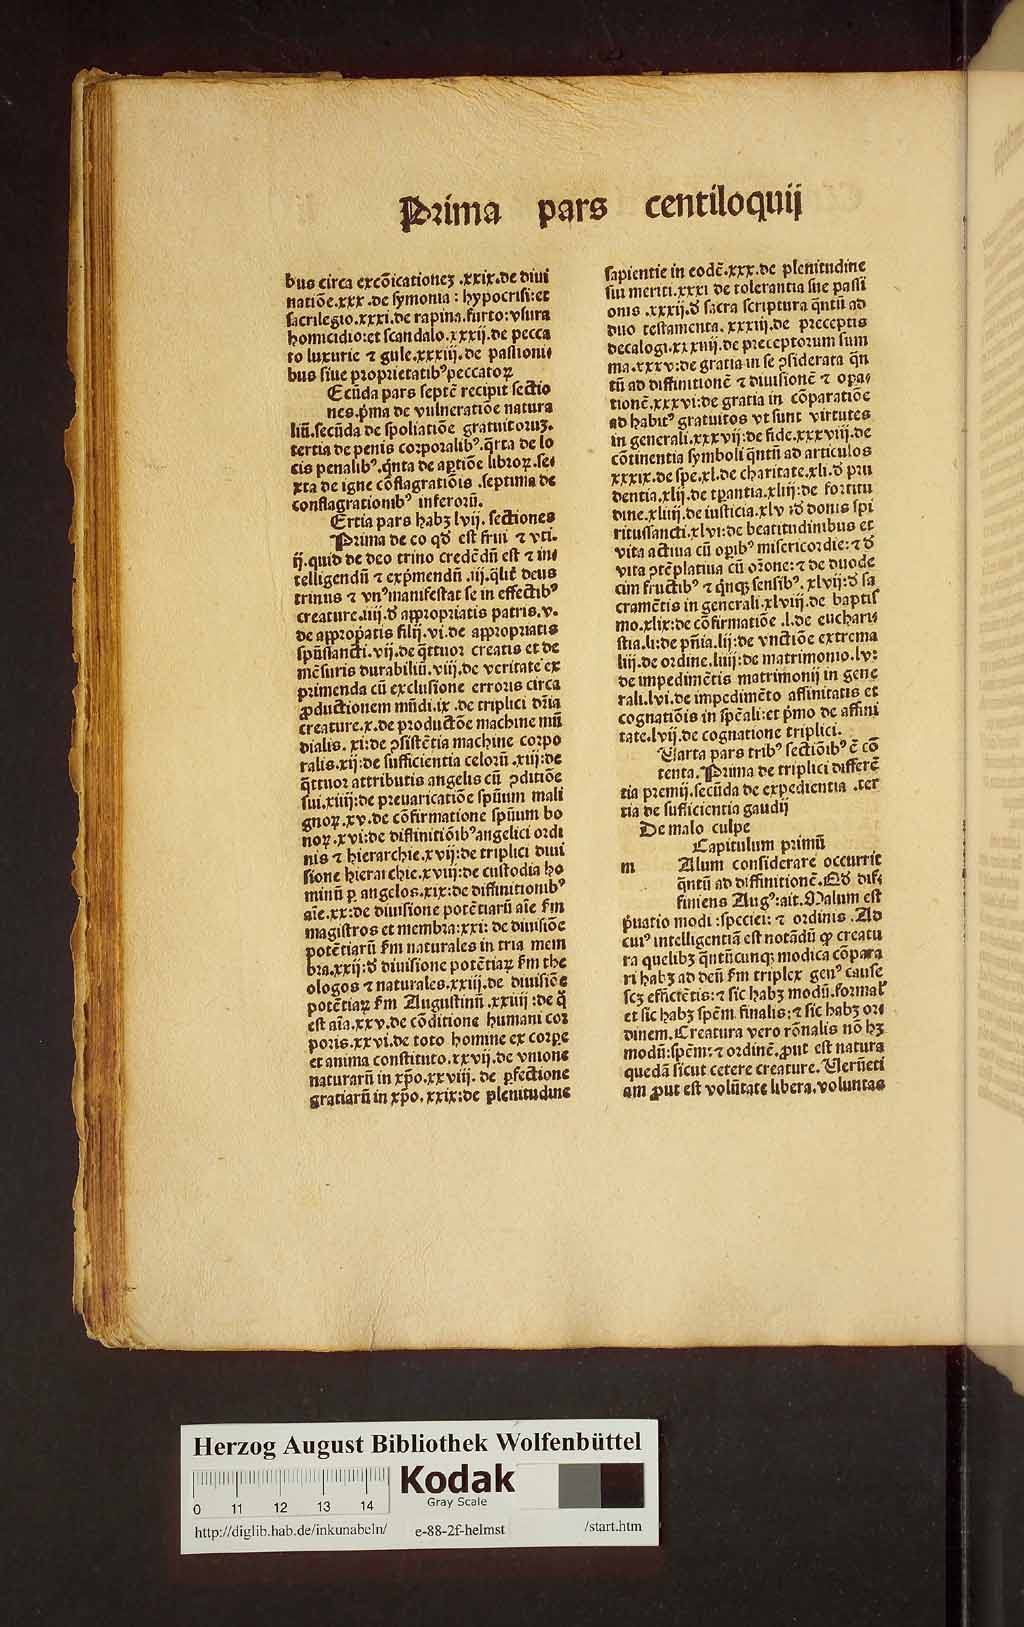 Prima pars centiloquij
bus circa excōicationeʒ .xxix.de diui
natiōe.xxx .de symonia : hypocrisi:et
sacrilegio.xxxi.de rapina.furto:vsura
homicidio:et scandalo.xxxij.de pecca
to luxurie ⁊ gule.xxxiij.de passioni
bus siue proprietatibꝰ peccatoꝝ
Ecūda pars septē recipit sectio
nes.p̄ma de vulneratiōe natura
liū.secūda de spoliatiōe gratuitoruʒ.
tertia de penis corporalibꝰ.q̄rta de lo
cis penalibꝰ.q̄nta de ap̄tiōe libroꝝ.se
xta de igne cōflagratiōis .septima de
conflagrationibꝰ inferorū.
Ertia pars habʒ lvij. sectiones
Prima de eo qđ est frui ⁊ vti.
ij.quid de deo trino credēdū est ⁊ in
telligendū ⁊ exp̄mendū .iij.q̄lit̄ deus
trinus ⁊ vnꝰ manifestat se in effectibꝰ
creature.iiij.đ appropriatis patris.v.
de approp̄atis filij.vi.de appropriatis
sp̄ūssancti.vij.de q̄ttuor creatis et de
mēsuris durabiliū.viij.de veritate ex
primenda cū exclusione erroris circa
ꝓductionem mūdi.ix .de triplici dr̄ia
creature.x.de productōe machine mū
dialis. xi:de ꝯsistētia machine corpo
ralis.xij:de sufficientia celorū .xiij:de
q̄ttuor attributis angelis cū ꝯditiōe
sui.xiiij:de preuaricatiōe sp̄uum mali
gnoꝝ.xv.de cōfirmatione sp̄uum bo
noꝝ.xvi:de diffinitiōibꝰ angelici ordi
nis ⁊ hierarchie.xvij:de triplici diui
sione hierarchie.xviij:de custodia ho
minū ꝑ angelos.xix:de diffinitionibꝰ
aīe.xx:de diuisione potētiarū aīe fm̄
magistros et membra:xxi: de diuisiōe
potētiarū fm̄ naturales in tria mem
bra.xxij:đ diuisione potētiaꝝ fm̄ the
ologos ⁊ naturales.xxiij.de diuisiōe
potētiaꝝ fm̄ Augustinū .xxiiij :de q̄
est aīa.xxv.de cōditione humani cor
poris.xxvi.de toto homine ex corpe
et anima constituto.xxvij.de vnione
naturarū in xp̄o.xxviij. de ꝑfectione
gratiarū in xp̄o. xxix:de plenitudine
sapientie in eodē.xxx.de plenitudine
sui meriti.xxxi de tolerantia siue passi
onis .xxxij.đ sacra scriptura q̄ntū ad
duo testamenta. xxxiij.de preceptis
decalogi.xxxiiij.de preceptorum sum
ma.xxxv:de gratia in se ꝯsiderata q̄n
tū ad diffinitionē ⁊ diuisionē ⁊ opa
tionē.xxxvi:de gratia in cōparatiōe
ad habitꝰ gratuitos vt sunt virtutes
in generali.xxxvij:de fide.xxxviij.de
cōtinentia symboli q̄ntū ad articulos
xxxix.de spe.xl.de charitate.xli.đ pru
dentia.xlij.de tꝑantia.xliij:de fortitu
dine.xliiij.de iusticia.xlv :đ donis spi
ritussancti.xlvi:de beatitudinibus et
vita actiua cū oꝑibꝰ misericordie:⁊ đ
vita ꝯtēplatiua cū or̄one:⁊ de duode
cim fructibꝰ ⁊ q̄nqʒ sensibꝰ. xlvij:đ sa
cramētis in generali.xlviij.de baptis
mo.xlix:de cōfirmatiōe .l.de euchari
stia.li:de pn̄ia.lij:de vnctiōe extrema
liij.de ordine.liiij:de matrimonio.lv:
de impedimētis matrimonij in gene
rali.lvi.de impedimēto affinitatis et
cognatiōis in sp̄eali:et p̄mo de affini
tate.lvij.de cognatione triplici.
Uarta pars tribꝰ sectiōibꝰ ē cō
tenta.Prima de triplici differē
tia premij.secūda de expedientia .ter
tia de sufficientia gaudij
De malo culpe
Capitulum primū
m Alum considerare occurrit
q̄ntū ad diffinitionē.Qđ dif
finiens Augꝰ:ait.Malum est
p̄uatio modi :speciei: ⁊ ordinis .Ad
cuiꝰ intelligentiā est notādū ꝙ creatu
ra quelibʒ q̄ntūcunqʒ modica cōpara
ri habʒ ad deū fm̄ triplex genꝰ cause
scʒ efficiētis:⁊ sic habʒ modū.formal̓
et sic habʒ sp̄em. finalis:⁊ sic habʒ or
dinem.Creatura vero rōnalis nō hʒ
modū:sp̄em:⁊ ordinē.ꝓut est natura
quedā sicut cetere creature.Uerūeti
am ꝓut est volūtate libera.voluntas
Herzog August Bibliothek Wolfenbüttel
Kodak
Gray Scale
0 11 12 13 14
http://diglib.hab.de/inkunabeln/ e-88-2f-helmst /start.htm